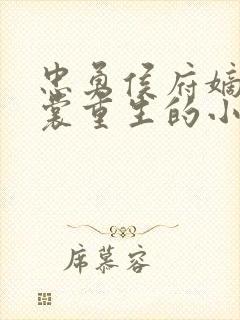 忠勇侯府嫡
裳重生的小
席慕容